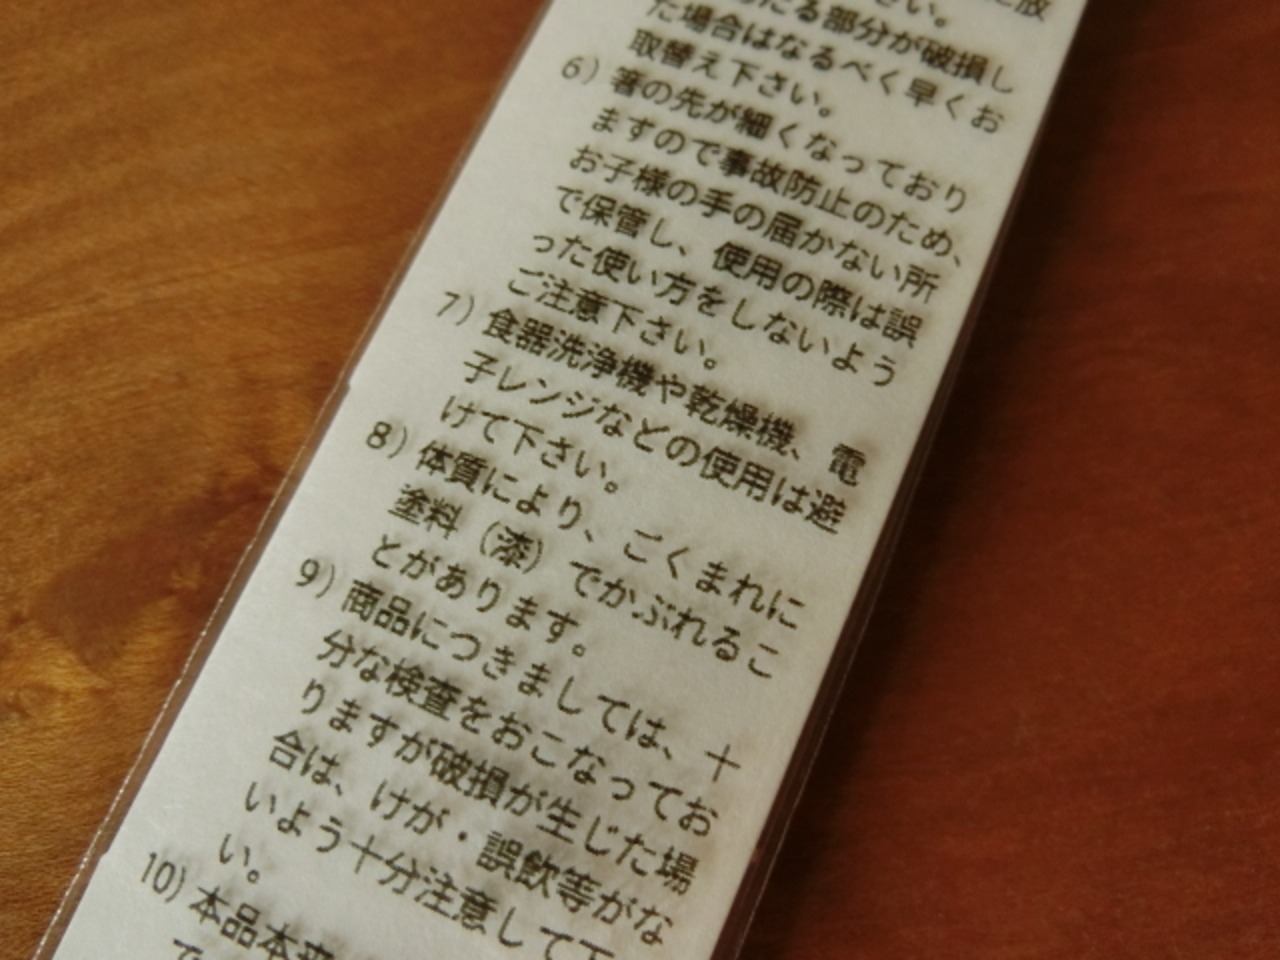 に放
さい。
たる部分が破損し
た場合はなるべく早くお
取替え下さい。
6) 箸の先が細くなっており
ますので事故防止のため、
お子様の手の届かない所
で保管し、使用の際は誤
った使い方をしないよう
ご注意下さい。
7) 食器洗浄機や乾燥機、電
子レンジなどの使用は避
けて下さい。
8) 体質により、ごくまれに
塗料（漆）でかぶれるこ
とがあります。
9) 商品につきましては、十
分な検査をおこなってお
りますが破損が生じた場
合は、けが・誤飲等がな
いよう十分注意して下
い。
10) 本品本来
で